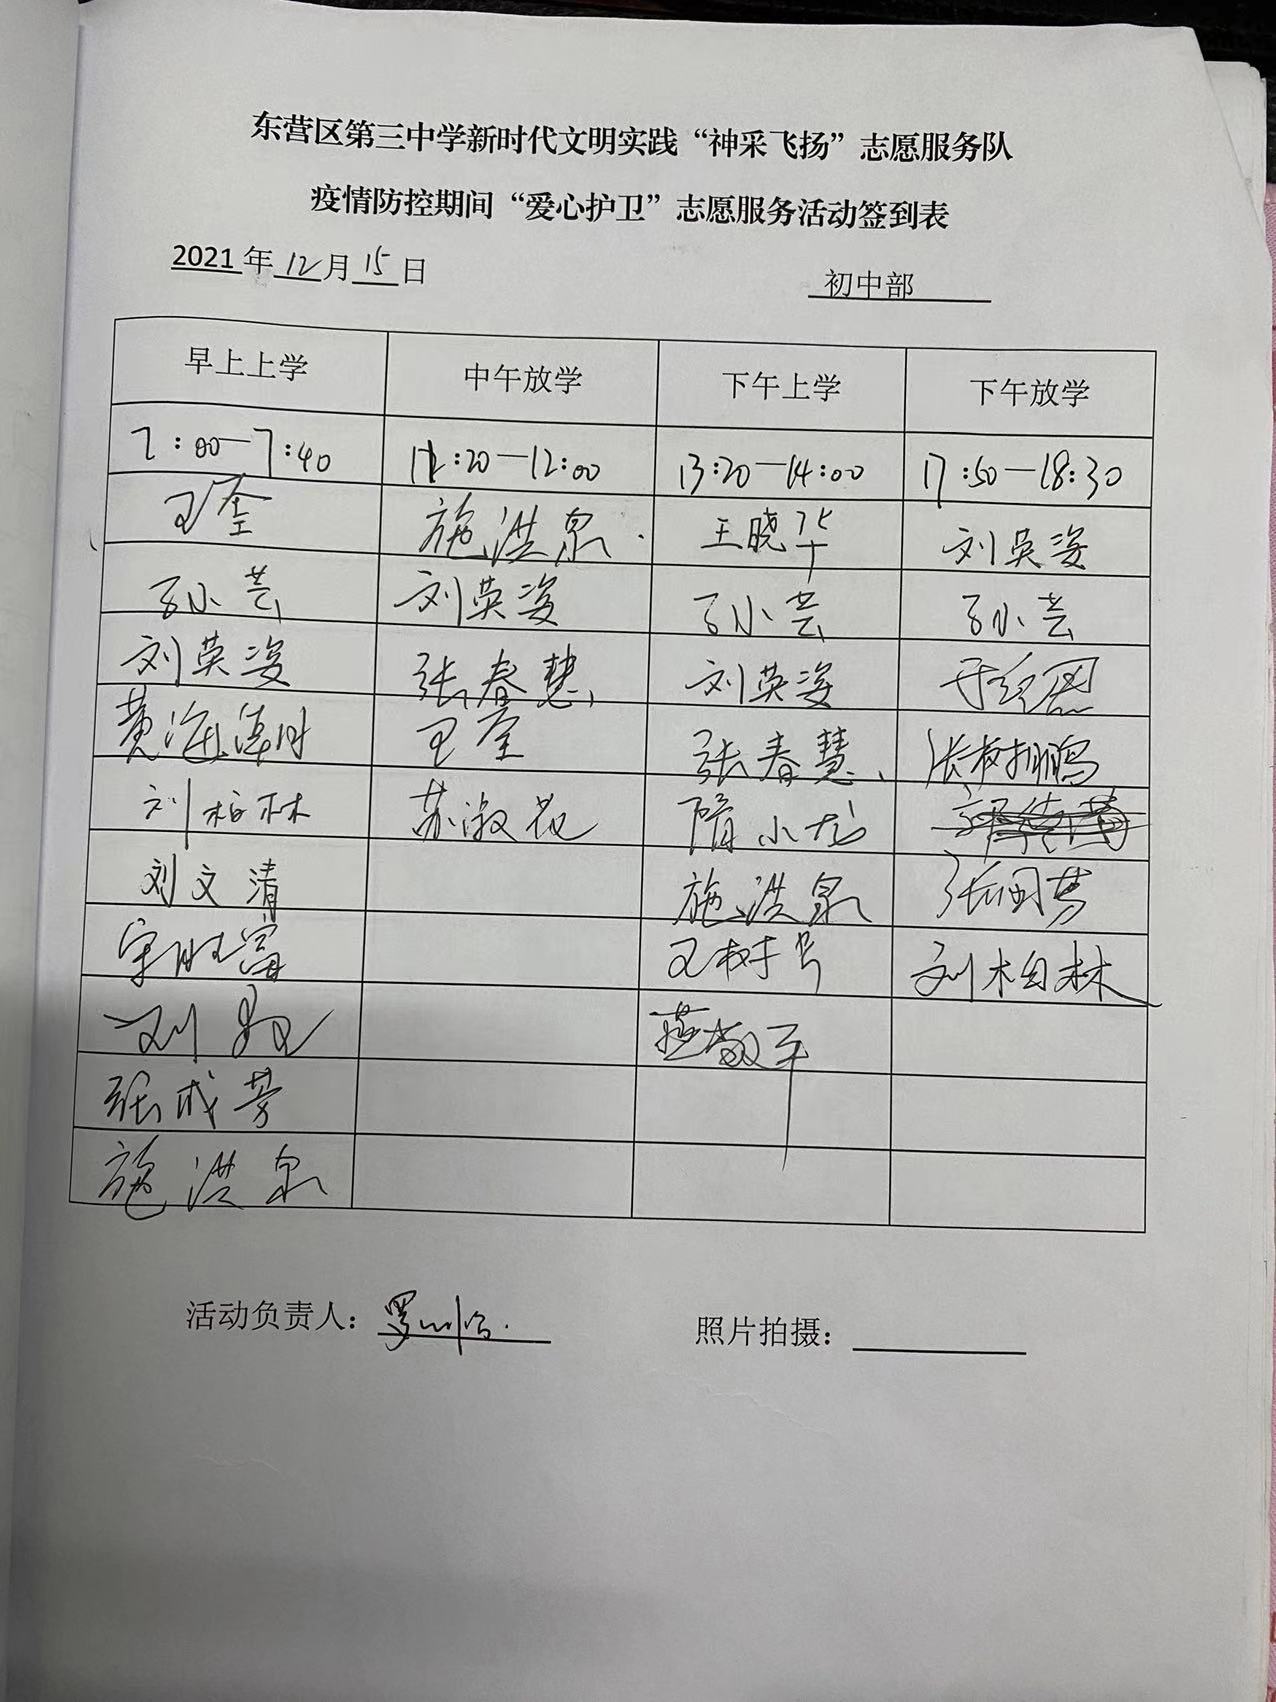 东营区第三中学新时代文明实践“神采飞扬”志愿服务队
疫情防控期间“爱心护卫”志愿服务活动签到表
2021年12月15日 初中部
早上上学 中午放学 下午上学 下午放学
7:00—7:40 11:20—12:00 13:20—14:00 17:50—18:30
王奎 施洪泉 王晓华 刘英姿
孙小芸 刘英姿 孙小芸 孙小芸
刘英姿 张春慧 刘英姿
黄海涛 王奎 张春慧 张树鹏
刘柏林 苏淑花 隋小龙
刘文清 施洪泉
王树号 刘柏林
刘
张成芳
施洪泉
活动负责人： 照片拍摄：